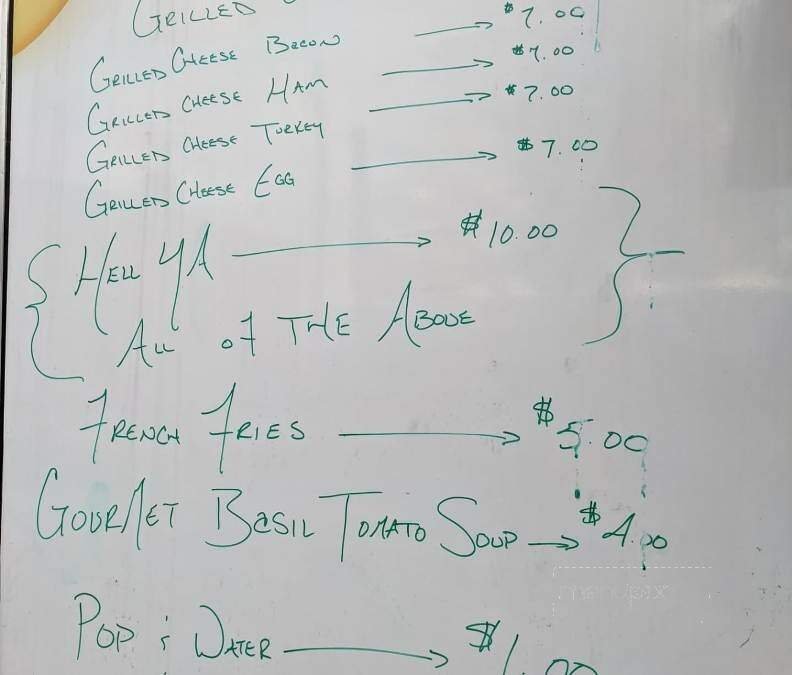 GRILLED
GRILLED CHEESE BACON → $7.00
GRILLED CHEESE HAM → $7.00
GRILLED CHEESE TURKEY → $7.00
GRILLED CHEESE EGG → $7.00
HELL YA → $10.00
ALL of THE ABOVE
FRENCH FRIES → $5.00
GOURMET BASIL TOMATO SOUP → $4.00
POP & WATER → $1.00